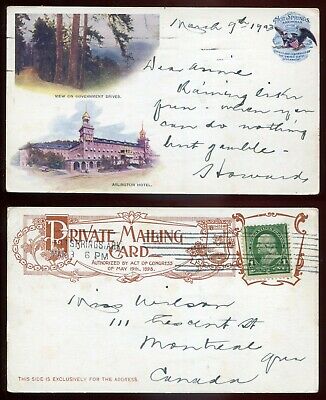 March 9th 1903
HOT SPRINGS
ARKANSAS
VIEW ON GOVERNMENT DRIVES.
Dear Annie
Raining like
fun - when you
can do nothing
but gamble.
Howard
ARLINGTON HOTEL.
PRIVATE MAILING
CARD
AUTHORIZED BY ACT OF CONGRESS
OF MAY 19TH, 1898.
SPRINGS, ARK.
6 PM
Miss Wilson
111 Crescent St
Montreal
Que
Canada
THIS SIDE IS EXCLUSIVELY FOR THE ADDRESS.